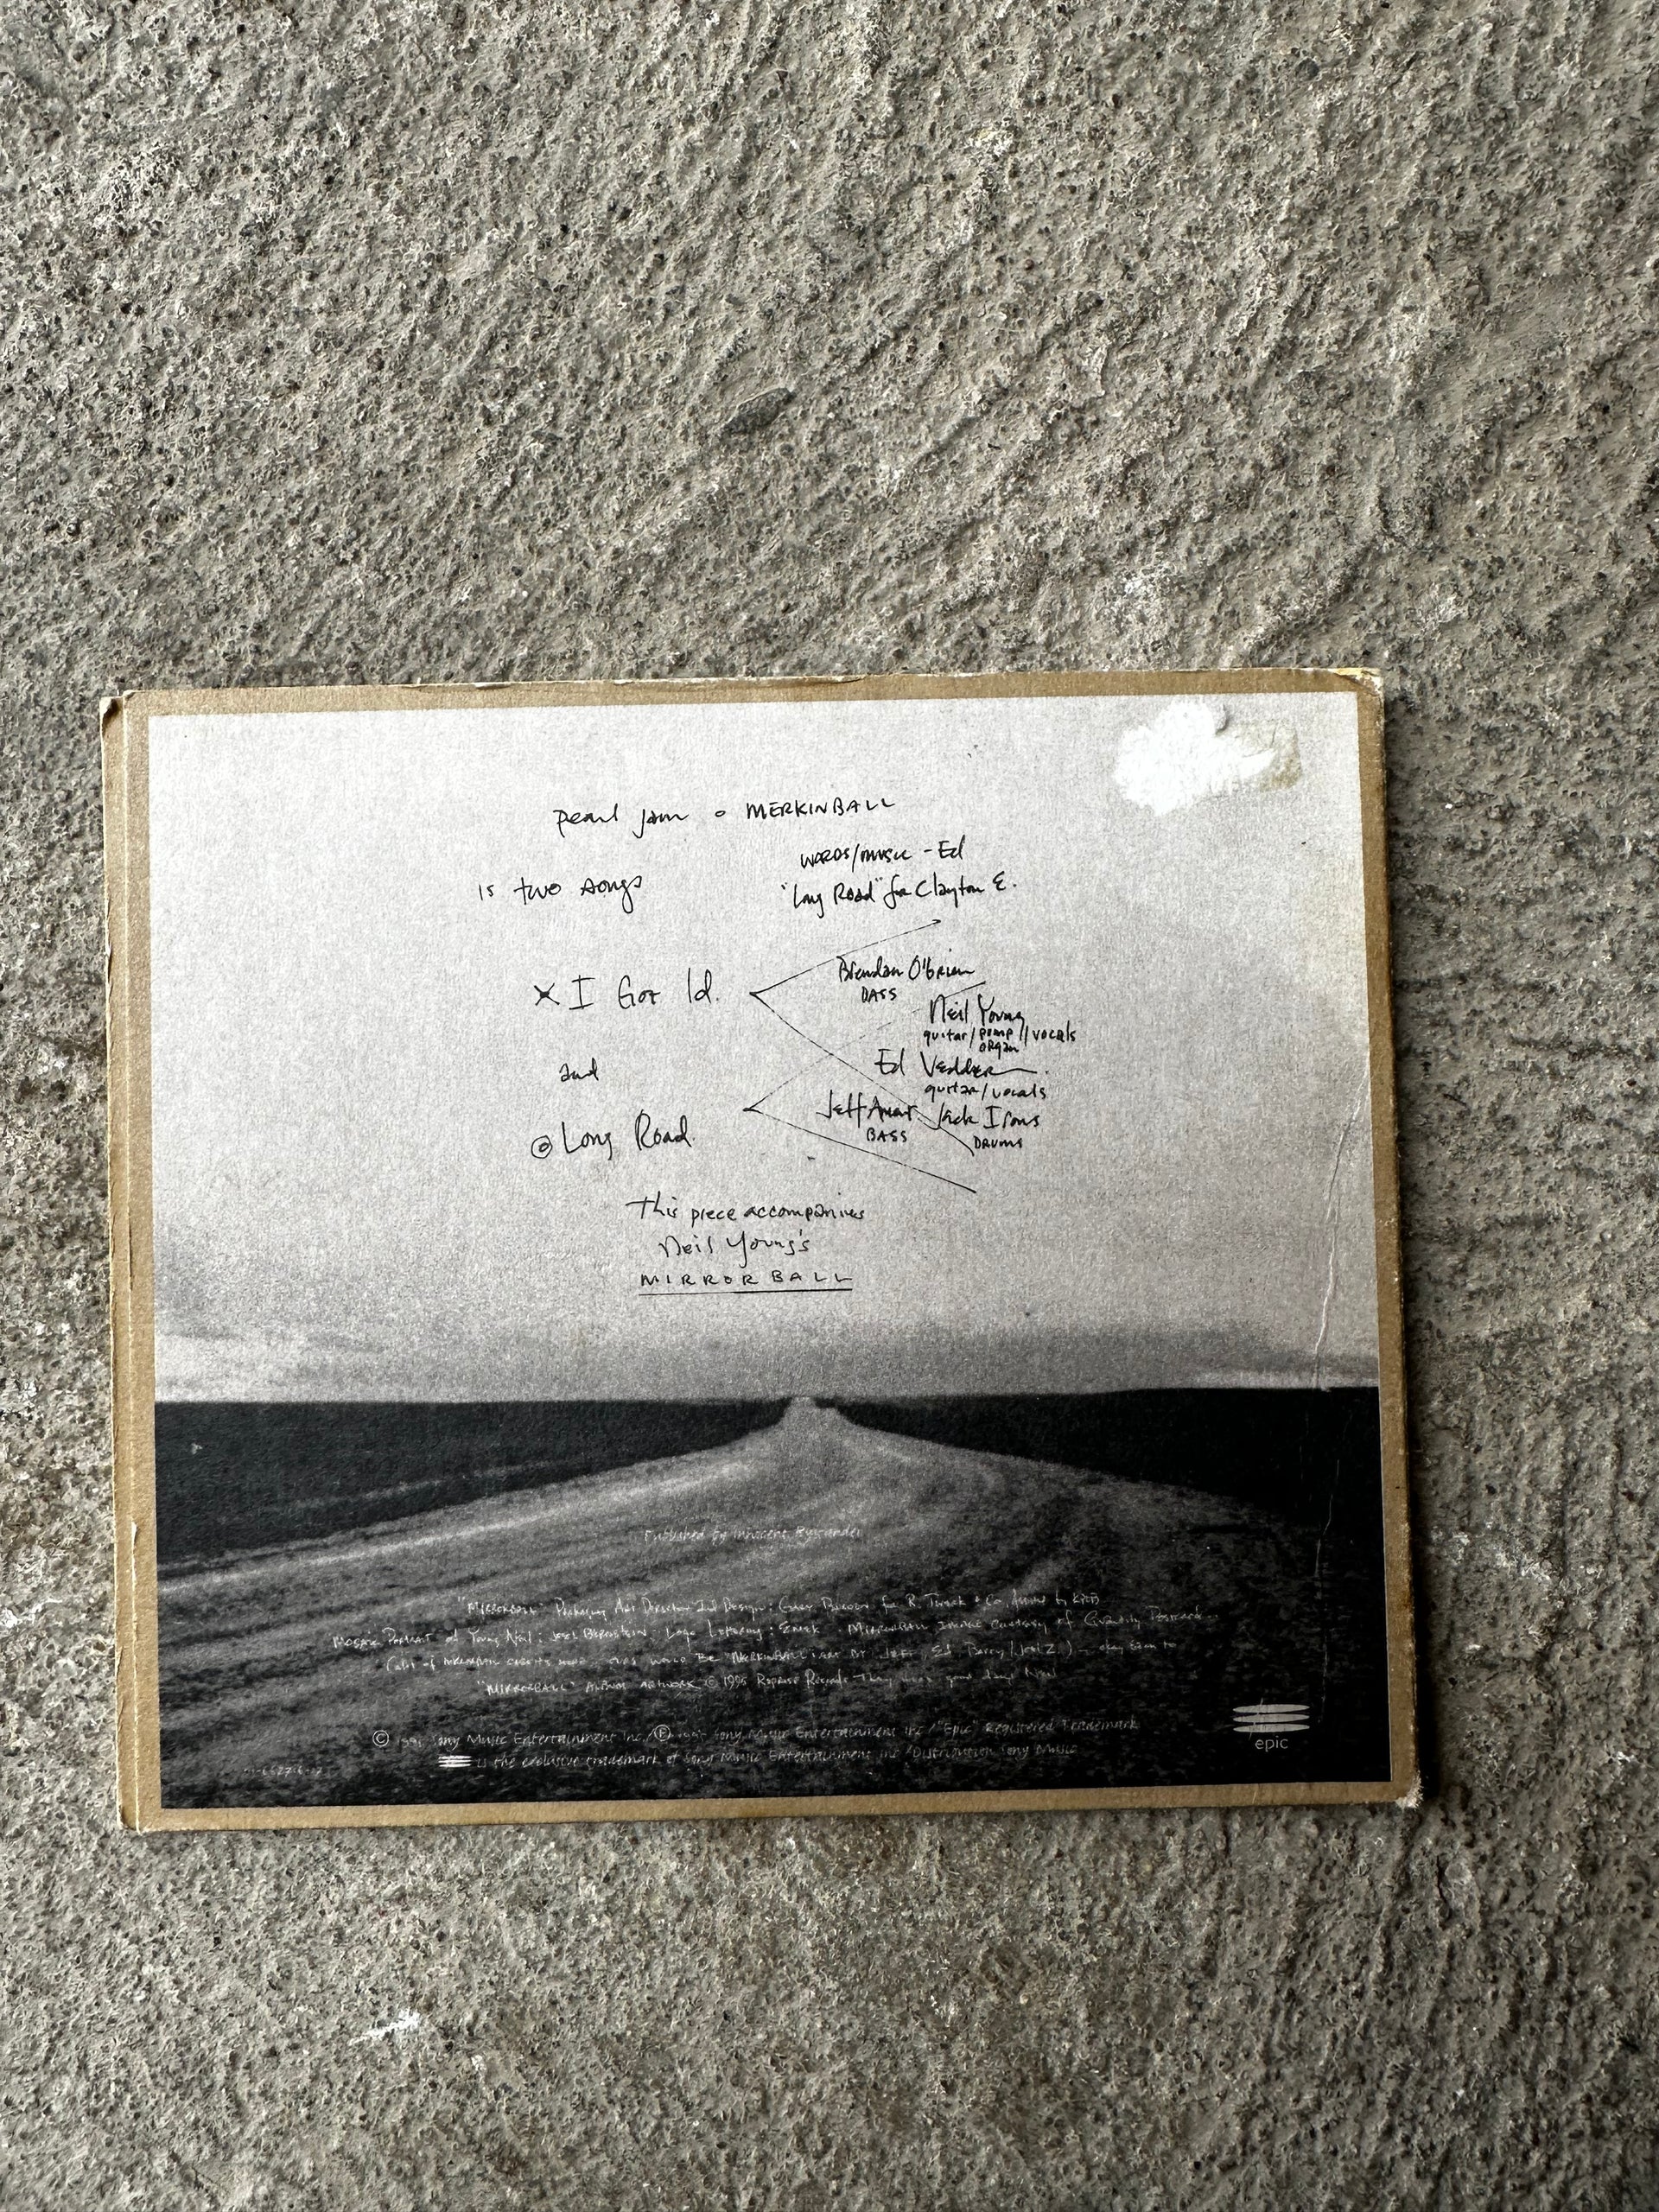 pearl jam o MERKINBALL
words/music - Ed
is two songs
"Long Road" for Clayton E.
Brendan O'brien
BASS
X I Got Id.
Neil Young
guitar/pump organ//vocals
and
Ed Vedder
guitar/vocals
Jeff Ament
BASS
Jack Irons
DRUMS
@ Long Road
This piece accompanies
Neil Young's
MIRROR BALL
Published by Innocent Bystander
"MIRRORBALL" Packaging Art Direction And Design: Gary Burden for R. Twerk & Co,
Mosaic Portrait of Young Neil: JOEL BERNSTEIN Logo Lettering: MIRRORBALL Image courtesy of Postcard
WOULD BE "MERKINBALL" ART BY JEFF, Ed, Barry
"MIRRORBALL" ALBUM ARTWORK © 1995 Reprise Records
© 1995 Sony Music Entertainment Inc./℗ 1995 Sony Music Entertainment Inc/"Epic" Registered Trademark
is the exclusive trademark of Sony Music Entertainment Inc/Distribution Sony Music
epic